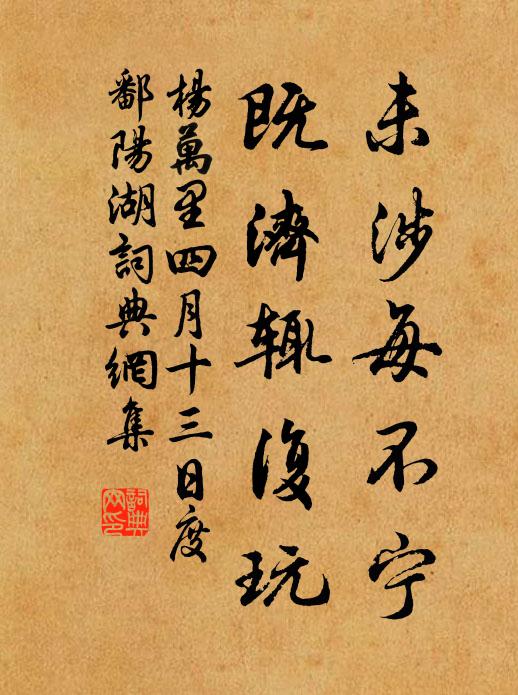 未涉每不宁
既濟辄復玩
楊萬里四月十三日度
鄱陽湖詞典網集
詞典网印